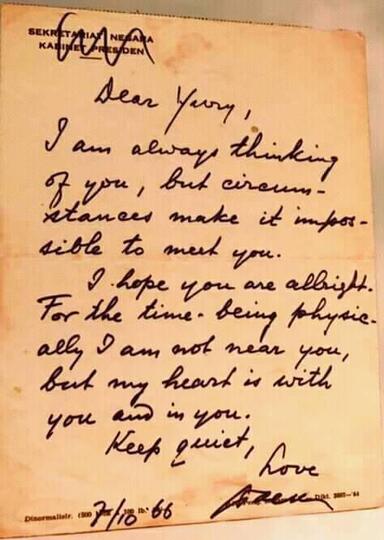 SEKRETARIAT NEGARA
KABINET PRESIDEN
Dear Yurry,
I am always thinking
of you, but circum-
stances make it impos-
sible to meet you.
I hope you are allright.
For the time-being physic-
ally I am not near you,
but my heart is with
you and in you.
Keep quiet,
Love
7/10 66